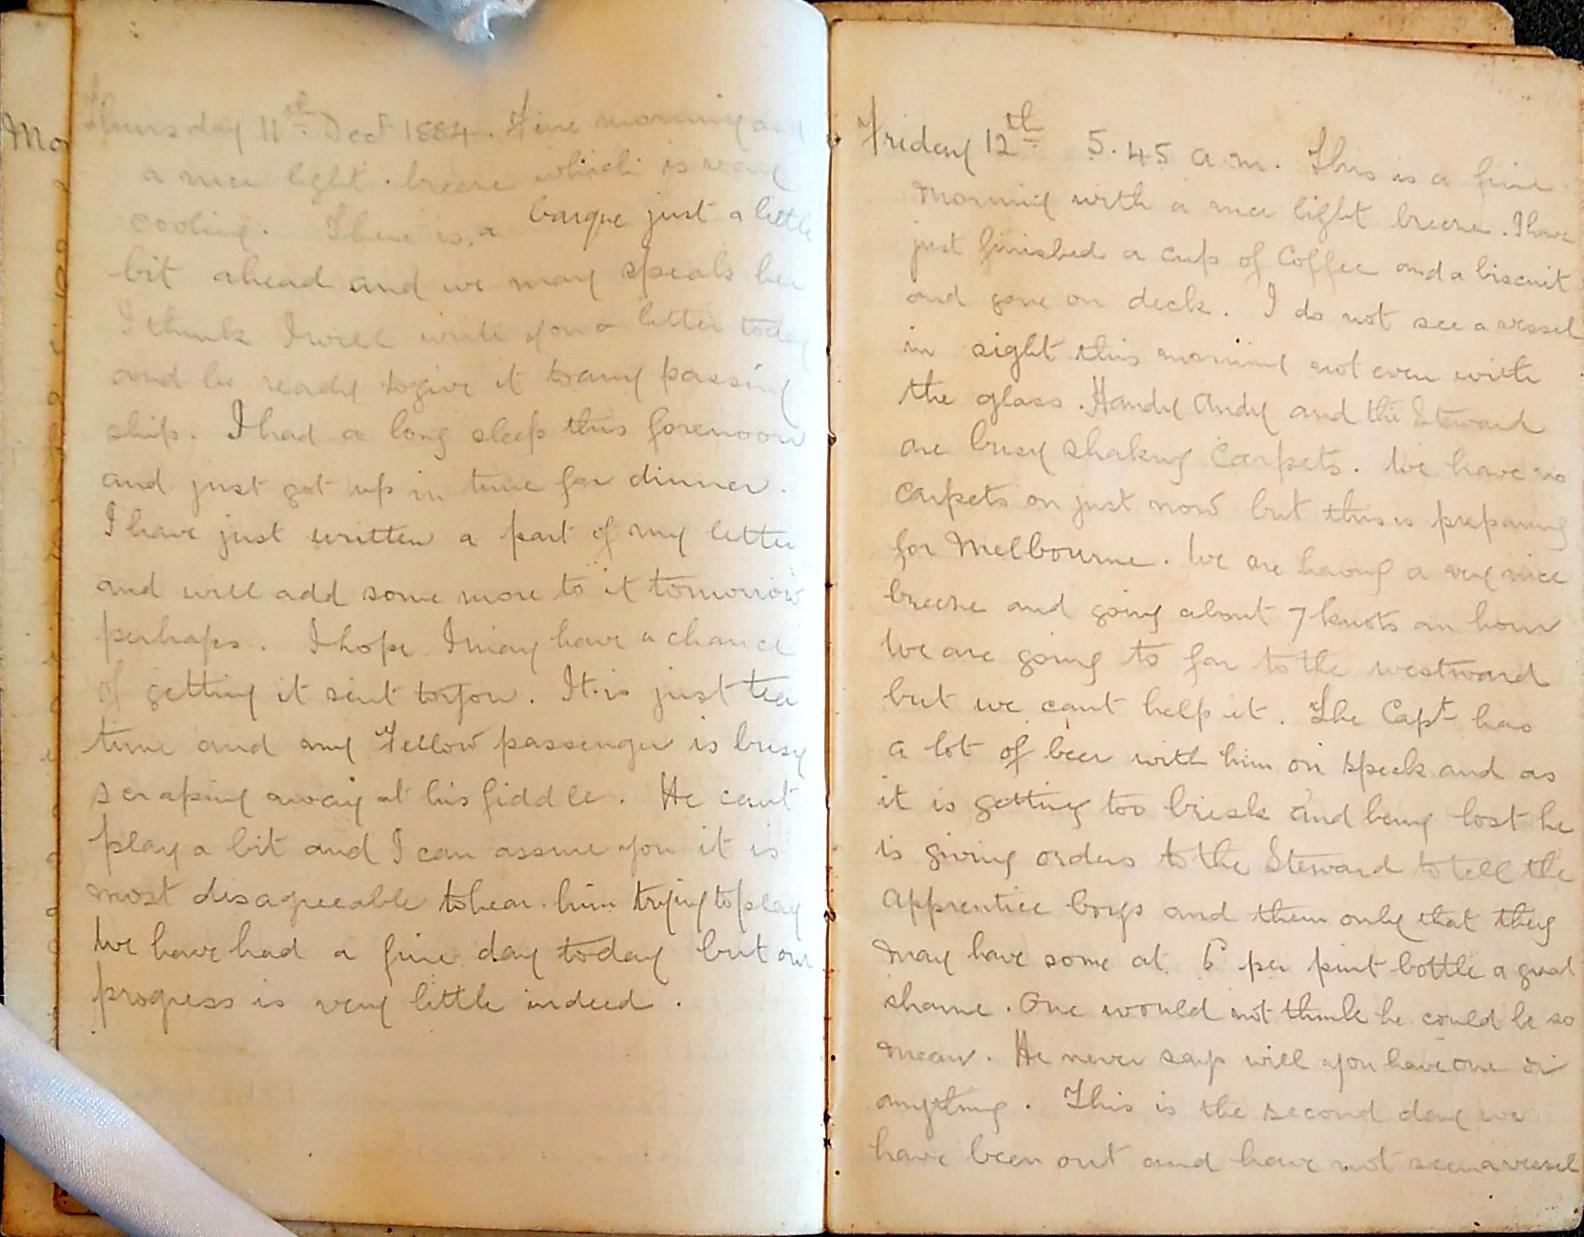 Mo
Thursday 11th Dect 1884. Fine morning and
a nice light breeze which is very
cooling. There is a barque just a little
bit ahead and we may speak her
I think I will write you a letter today
and be ready to give it to any passing
ship. I had a long sleep this forenoon
and just got up in time for dinner.
I have just written a part of my letter
and will add some more to it tomorrow
perhaps. I hope I may have a chance
of getting it sent to you. It is just tea
time and my Fellow passenger is busy
scraping away at his fiddle. He cant
play a bit and I can assure you it is
most disagreeable to hear him trying to play
We have had a fine day today but our
progress is very little indeed.
Friday 12th 5.45 a.m. This is a fine
morning with a nice light breeze. I have
just finished a cup of Coffee and a biscuit
and gone on deck. I do not see a vessel
in sight this morning not even with
the glass. Handy Andy and the Steward
are busy shaking Carpets. We have no
carpets on just now but this is preparing
for Melbourne. We are having a very nice
breeze and going about 7 knots an hour
We are going to far to the westward
but we cant help it. The Capt has
a lot of beer with him on speck and as
it is getting too brisk and being lost he
is giving orders to the Steward to tell the
apprentice boys and them only that they
may have some at 6d per pint bottle a great
shame. One would not think he could be so
mean. He never says will you have one or
anything. This is the second day we
have been out and have not seen a vessel